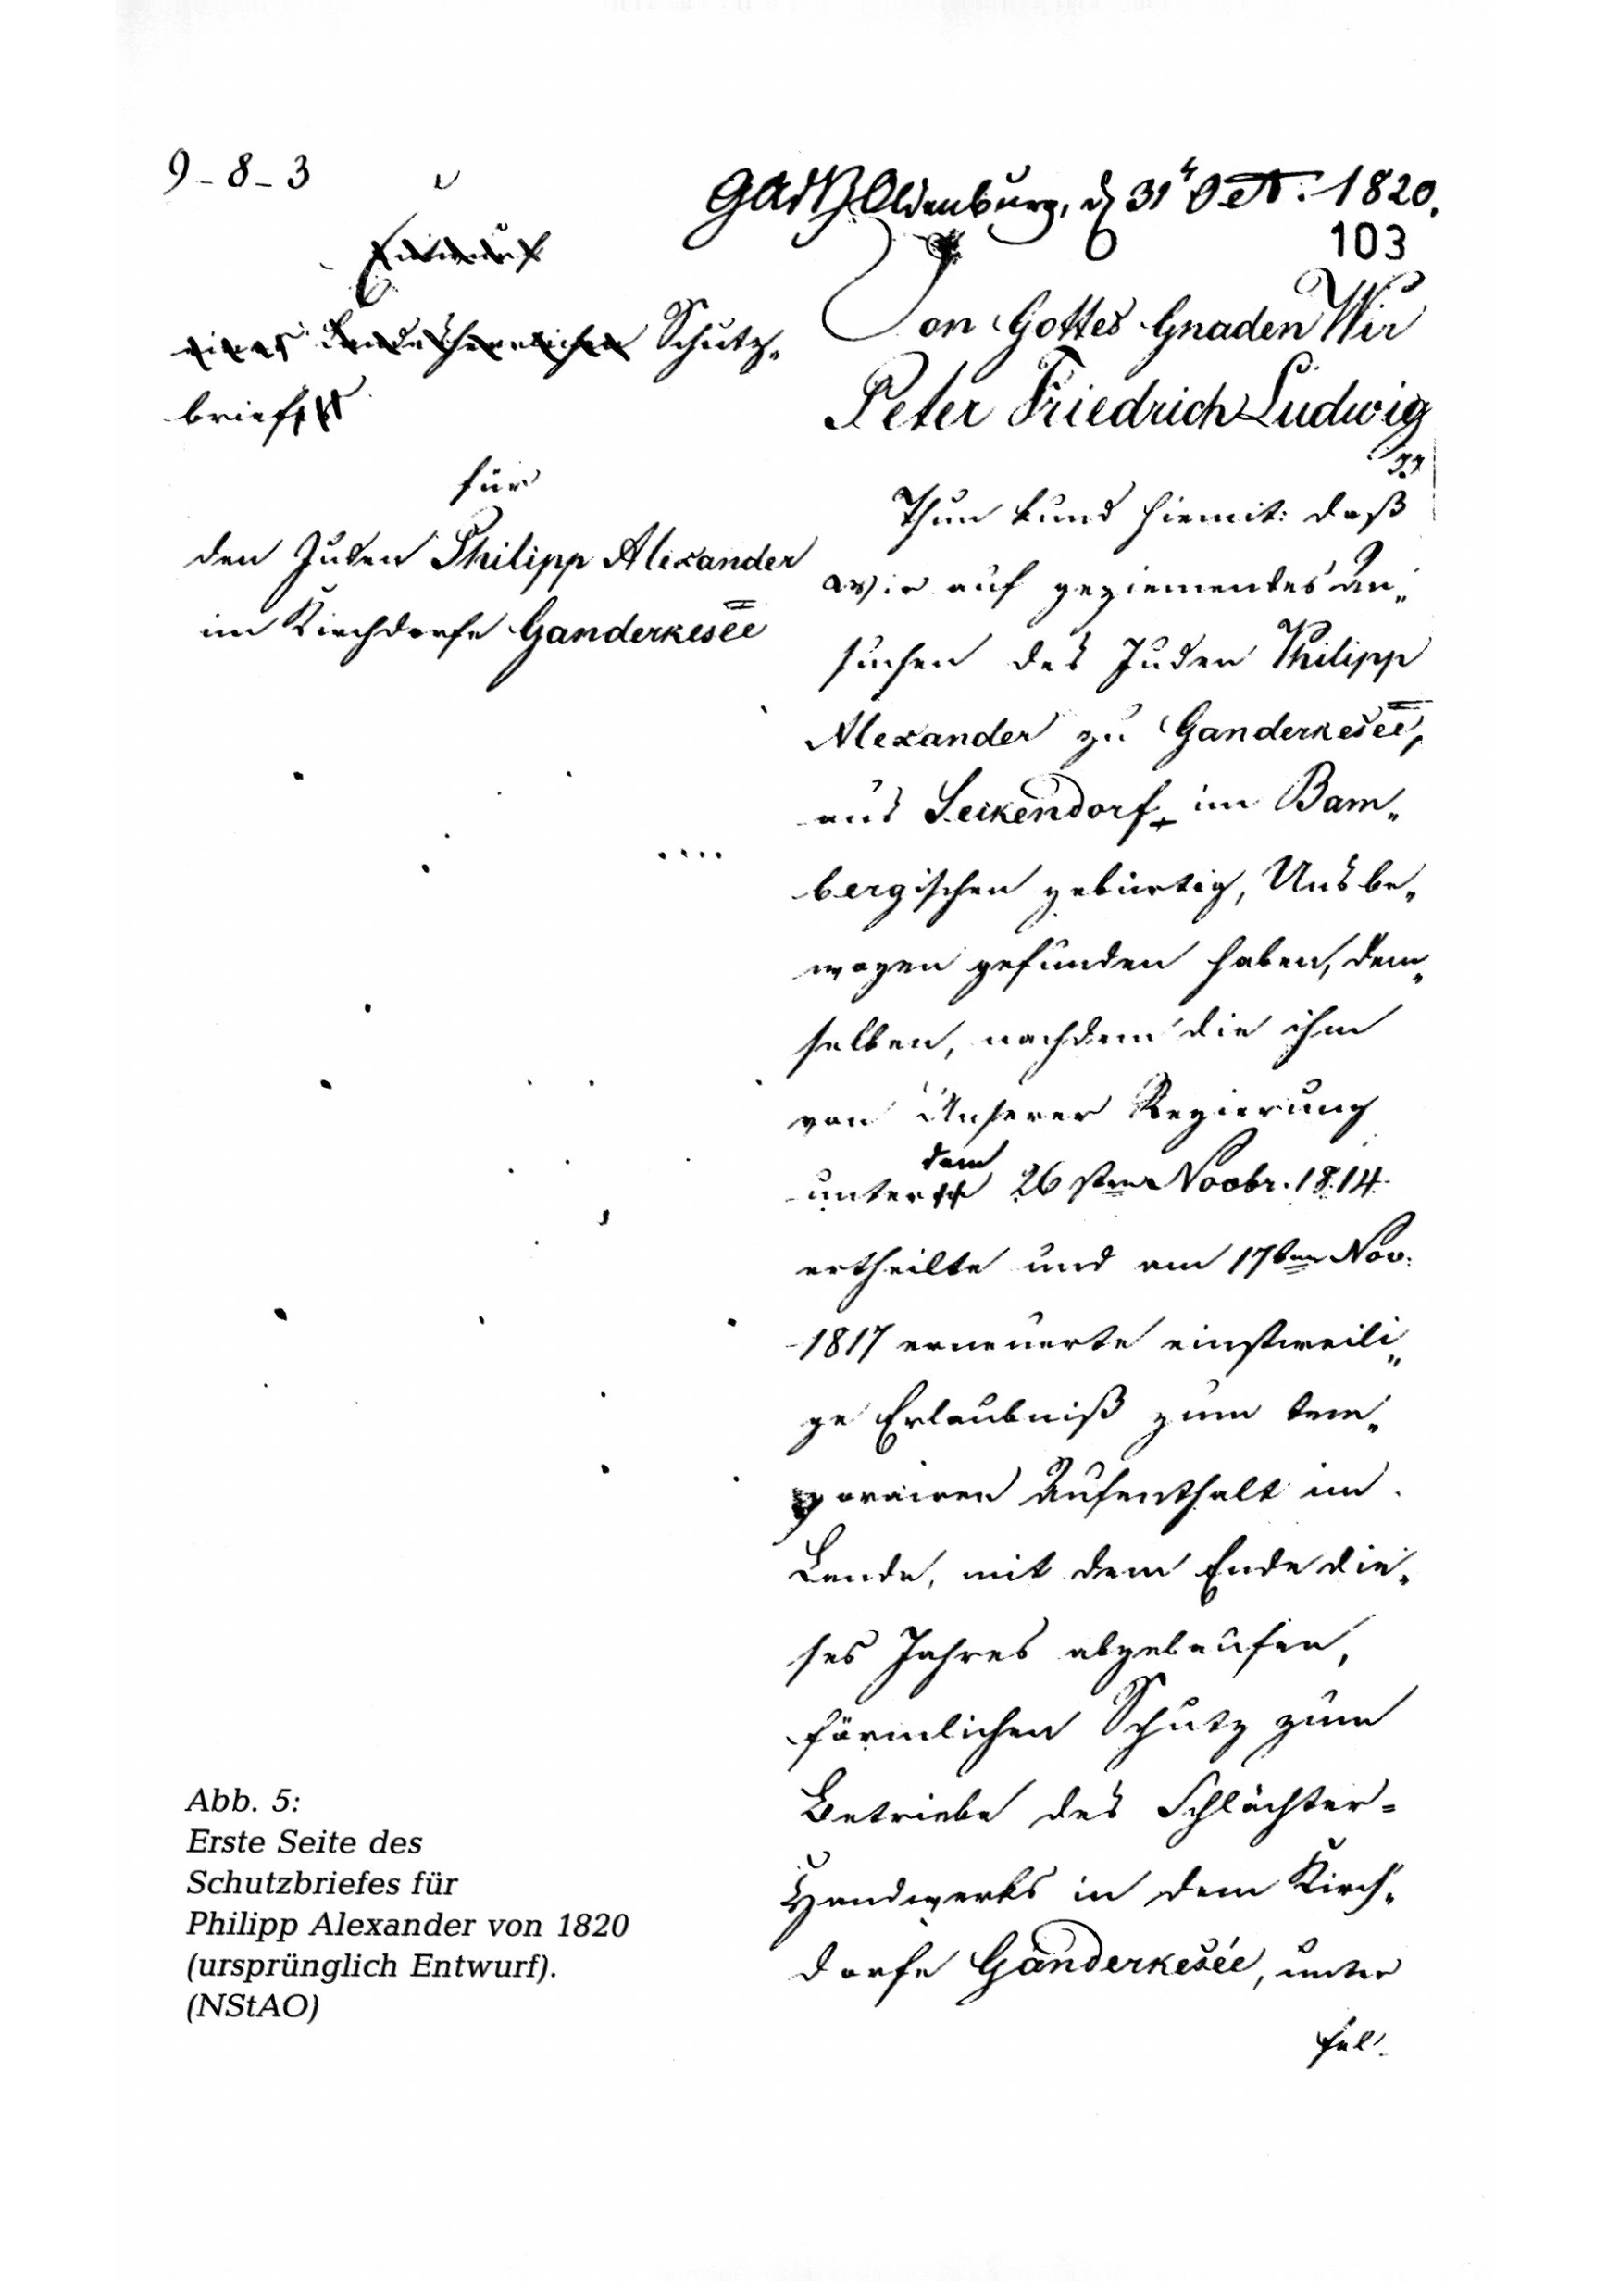 9-8-3
Oldenburg, d 31 Oct. 1820.
103
Entwurf
eines landesherrlichen Schutz-
briefes
für
den Juden Philipp Alexander
im Kirchdorfe Ganderkesee
Von Gottes Gnaden Wir
Peter Friedrich Ludwig
Thun kund hiemit: daß
wir auf geziemendes An-
suchen des Juden Philipp
Alexander zu Ganderkesee,
aus Seckendorf im Bam-
bergischen gebürtig, Uns be-
wogen gefunden haben, dem-
selben, nachdem die ihm
von Unserer Regierung
unter dem 26sten Novbr. 1814
ertheilte und am 17ten Nov.
1817 erneuerte einstweili-
ge Erlaubniß zum tem-
porairen Aufenthalt im
Lande, mit dem Ende die-
ses Jahres abgelaufen,
förmlichen Schutz zum
Betriebe des Schlächter-
Handwerks in dem Kirch-
dorfe Ganderkesée, unter
fol.
Abb. 5:
Erste Seite des
Schutzbriefes für
Philipp Alexander von 1820
(ursprünglich Entwurf).
(NStAO)